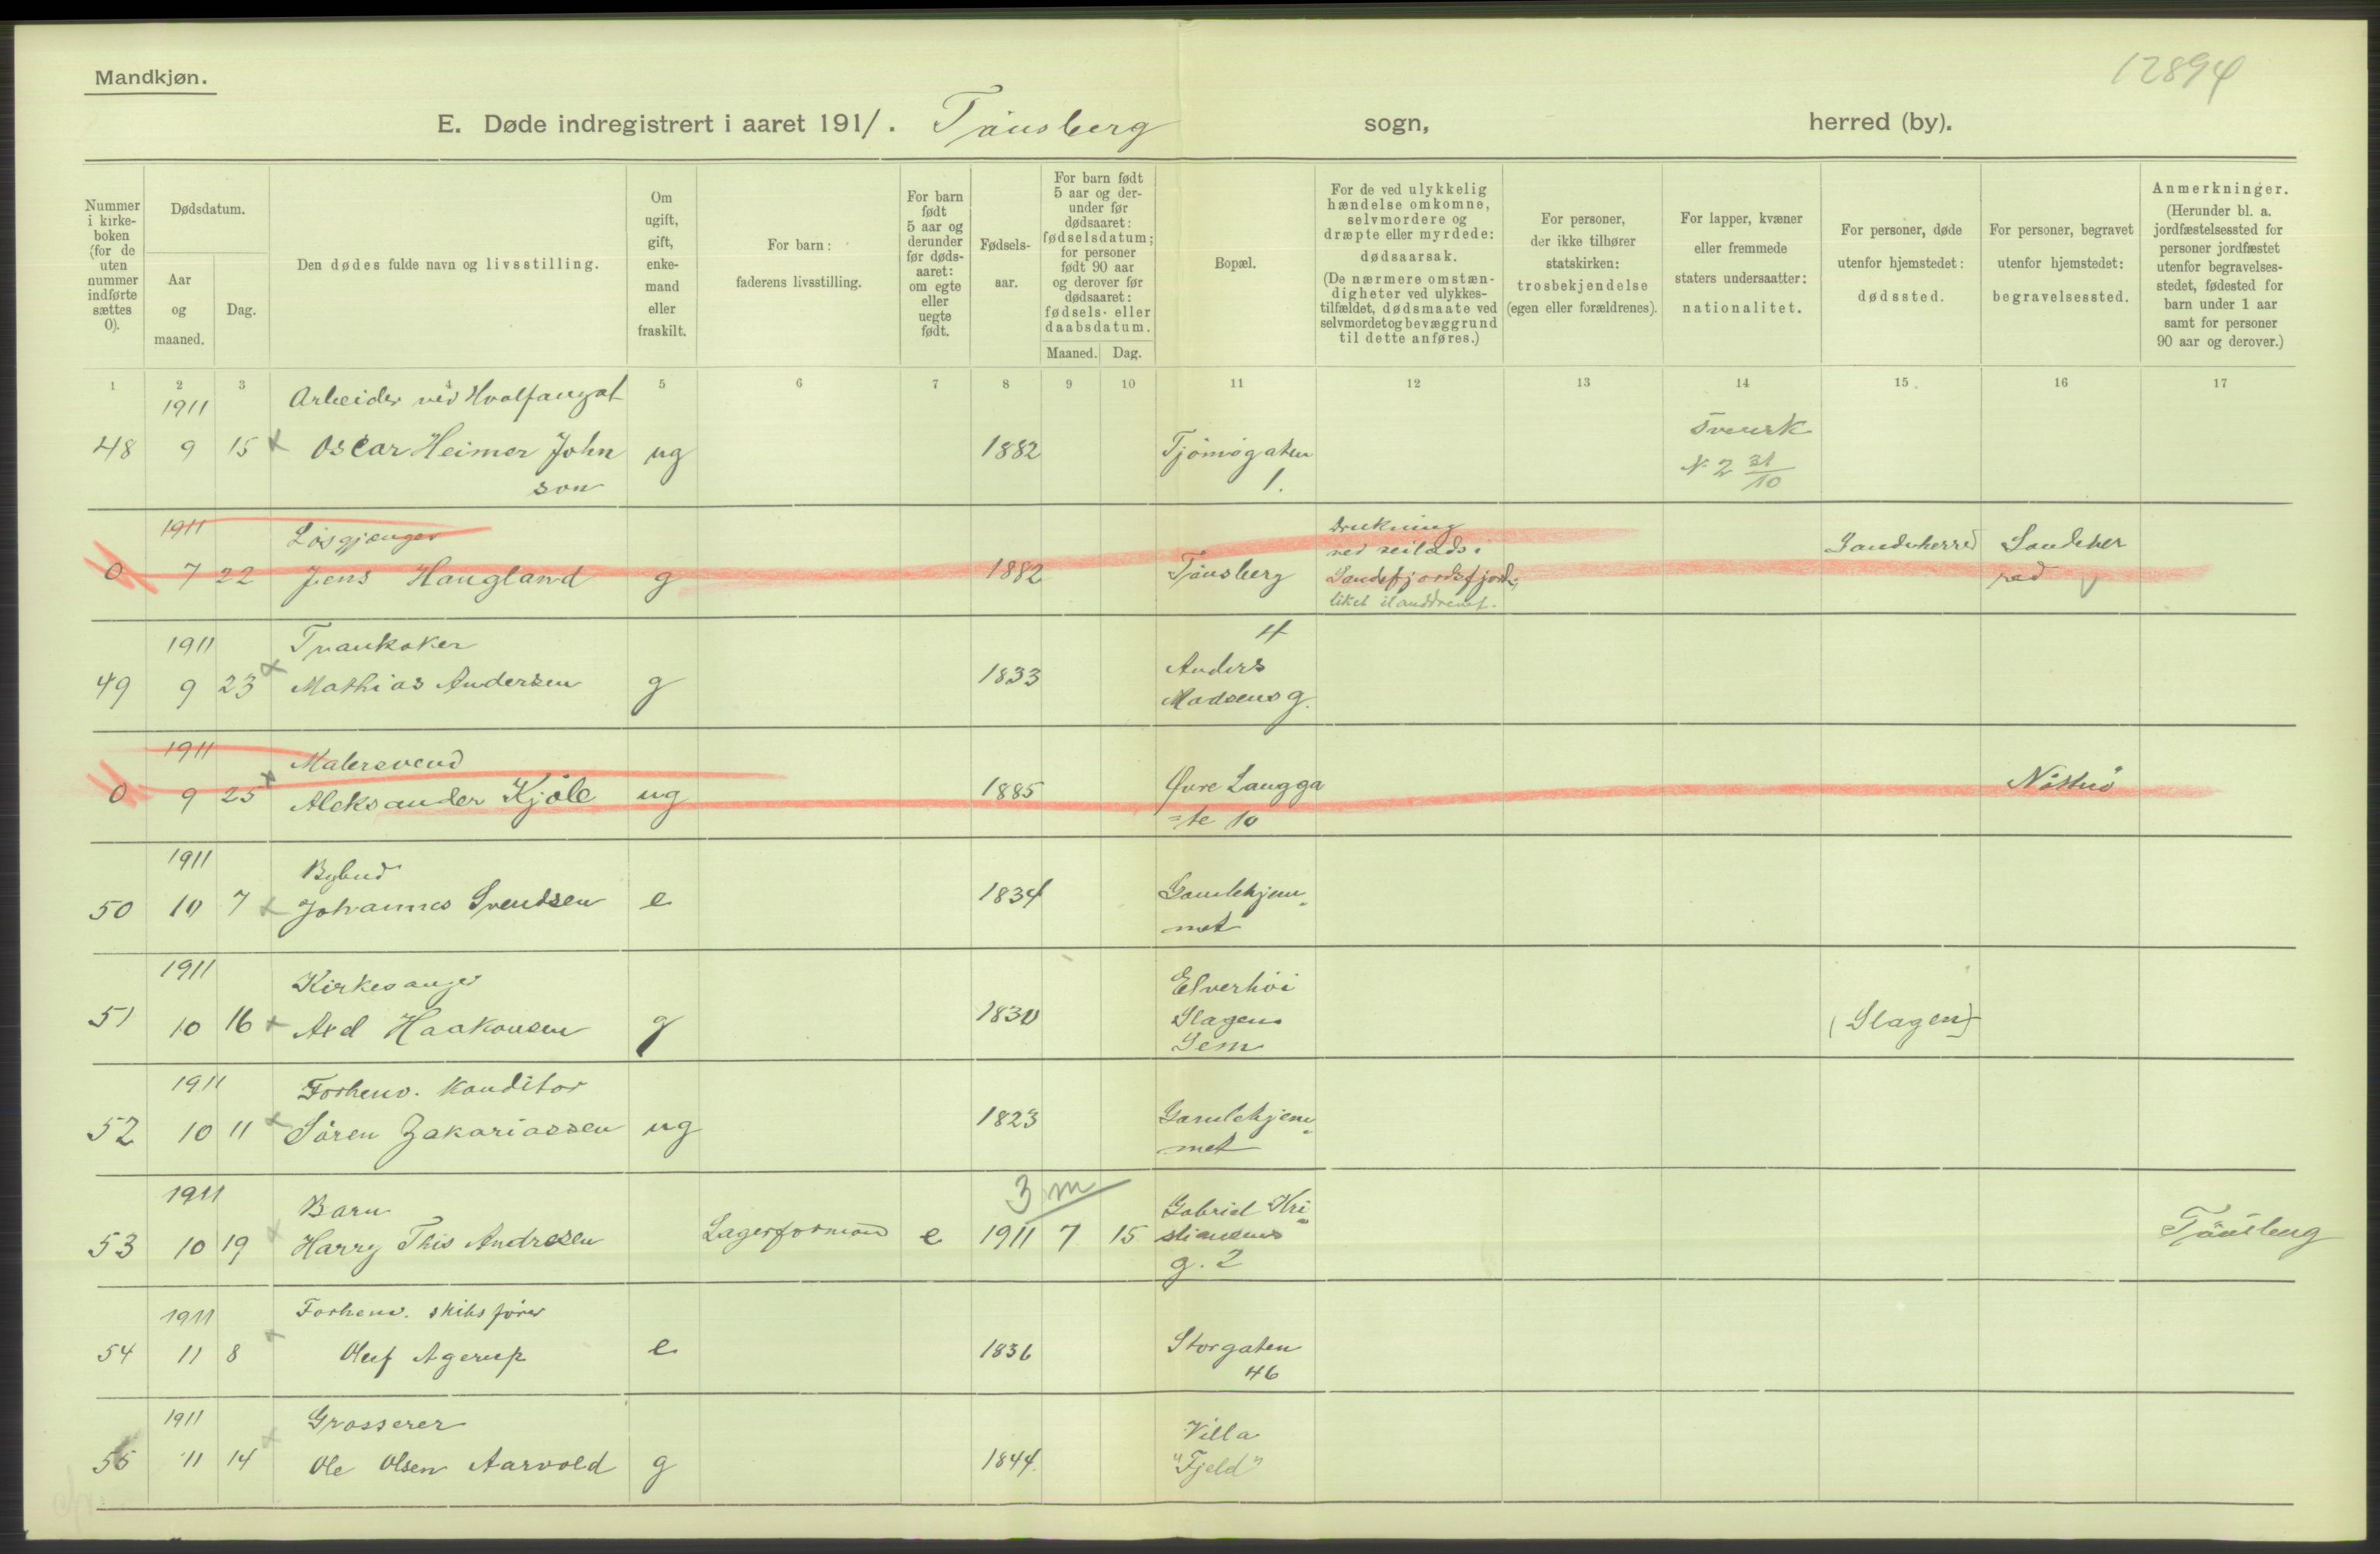 Mandkjøn.
12894
E. Døde indregistrert i aaret 1911. Tønsberg sogn, herred (by).
Nummer i kirke-boken (for de uten nummer indførte sættes 0).
Dødsdatum.
Aar og maaned.
Dag.
Den dødes fulde navn og livsstilling.
Om ugift, gift, enke-mand eller fraskilt.
For barn: faderens livsstilling.
For barn født 5 aar og derunder før døds-aaret: om egte eller uegte født.
Fødsels-aar.
For barn født 5 aar og der-under før dødsaaret: fødselsdatum; for personer født 90 aar og derover før dødsaaret: fødsels- eller daabsdatum.
Maaned. Dag.
Bopæl.
For de ved ulykkelig hændelse omkomne, selvmordere og dræpte eller myrdede: dødsaarsak. (De nærmere omstæn-digheter ved ulykkes-tilfældet, dødsmaate ved selvmord et og bevæggrund til dette anføres.)
For personer, der ikke tilhører statskirken: trosbekjendelse (egen eller forældrenes).
For lapper, kvæner eller fremmede staters undersaatter: nationalitet.
For personer, døde utenfor hjemstedet: dødssted.
For personer, begravet utenfor hjemstedet: begravelsessted.
Anmerkninger. (Herunder bl. a. jordfæstelsessted for personer jordfæstet utenfor begravelses-stedet, fødested for barn under 1 aar samt for personer 90 aar og derover.)
1 2 3 4 5 6 7 8 9 10 11 12 13 14 15 16 17
1911 Arbeider ved Hvalfangst
48 9 15 Oscar Heimer John ug 1882 Tjømøgaten Svensk
son 1. N. 2 31/10
1911 Løsgjænger Drukning
ved seilads i Sandeherred Sandeher
0 7 22 Jens Haugland g 1882 Tønsberg Sandefjordsfjord; red
liket ilanddrevet.
1911 Trankoker 4
49 9 23 Mathias Andersen g 1833 Anders
Madsens g.
1911 Malersvend
0 9 25 Aleksander Kjøle ug 1885 Øvre Langga Nøtterø
=te 10
1911 Bybud
50 10 7 Johannes Svendsen e 1834 Gamlehjem
met
1911 Kirkesanger Elverhöi
51 10 16 Haakonsen g 1830 Slagen (Slagen)
Sem
1911 Forhenv. Konditor
52 10 11 Sören Zakariassen ug 1823 Gamlehjem
met
1911 Barn 3 m Gabriel Kri
53 10 19 Harry This Andresen Lagerformand e 1911 7 15 stiansens Tönsberg
g. 2
1911 Forhenv. skibsfører
54 11 8 Oluf Agerup e 1836 Storgaten
46
1911 Grosserer Villa
55 11 14 Ole Olsen Aarvold g 1844. "Fjeld"